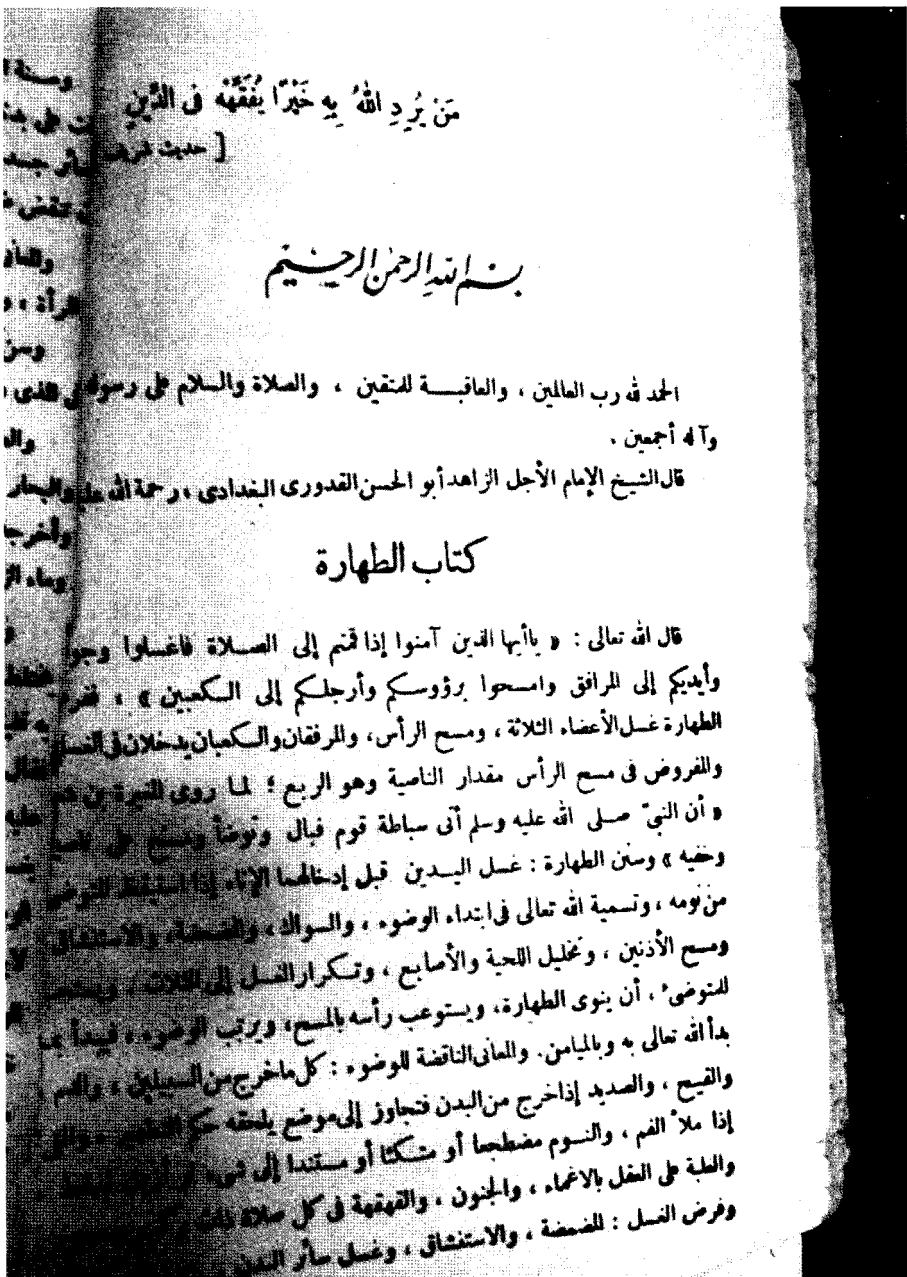 مَنْ يُرِدِ اللهُ بِهِ خَيْرًا يُفَقِّهْهُ فى الدِّينِ
[ حديث شريف
بسم الله الرحمن الرحيم
الحمد لله رب العالمين ، والعاقبة للمتقين ، والصلاة والسلام على رسوله
وآله أجمعين .
قال الشيخ الإمام الأجل الزاهد أبو الحسن القدورى البغدادى ، رحمة الله عليه
كتاب الطهارة
قال الله تعالى : « يا أيها الذين آمنوا إذا قمتم إلى الصلاة فاغسلوا
وأيديكم إلى المرافق وامسحوا برؤوسكم وأرجلكم إلى الكعبين » ،
الطهارة غسل الأعضاء الثلاثة ، ومسح الرأس ، والمرفقان والكعبان يدخلان فى الغسل
والمفروض فى مسح الرأس مقدار الناصية وهو الربع ؛ لما روى المغيرة بن
« أن النبىّ صلى الله عليه وسلم أتى سباطة قوم فبال وتوضأ ومسح على
وخفيه » وسنن الطهارة : غسل اليدين قبل إدخالهما الإناء إذا استيقظ المتوضئ
من نومه ، وتسمية الله تعالى فى ابتداء الوضوء ، والسواك ، والمضمضة ، والاستنشاق
ومسح الأذنين ، وتخليل اللحية والأصابع ، وتكرار الغسل إلى الثلاث ، ويستحب
للمتوضىء ، أن ينوى الطهارة ، ويستوعب رأسه بالمسح ، ويرتب الوضوء ، فيبدأ بما
بدأ الله تعالى به وبالميامن . والمعانى الناقضة للوضوء : كل ما خرج من السبيلين ، والدم ،
والقيح ، والصديد إذا خرج من البدن فتجاوز إلى موضع يلحقه حكم التطهير ، والقىء
إذا ملأ الفم ، والنوم مضطجعا أو متكئا أو مستندا إلى شىء
والغلبة على العقل بالاغماء ، والجنون ، والقهقهة فى كل صلاة ذات
وفرض الغسل : المضمضة ، والاستنشاق ، وغسل سائر البدن